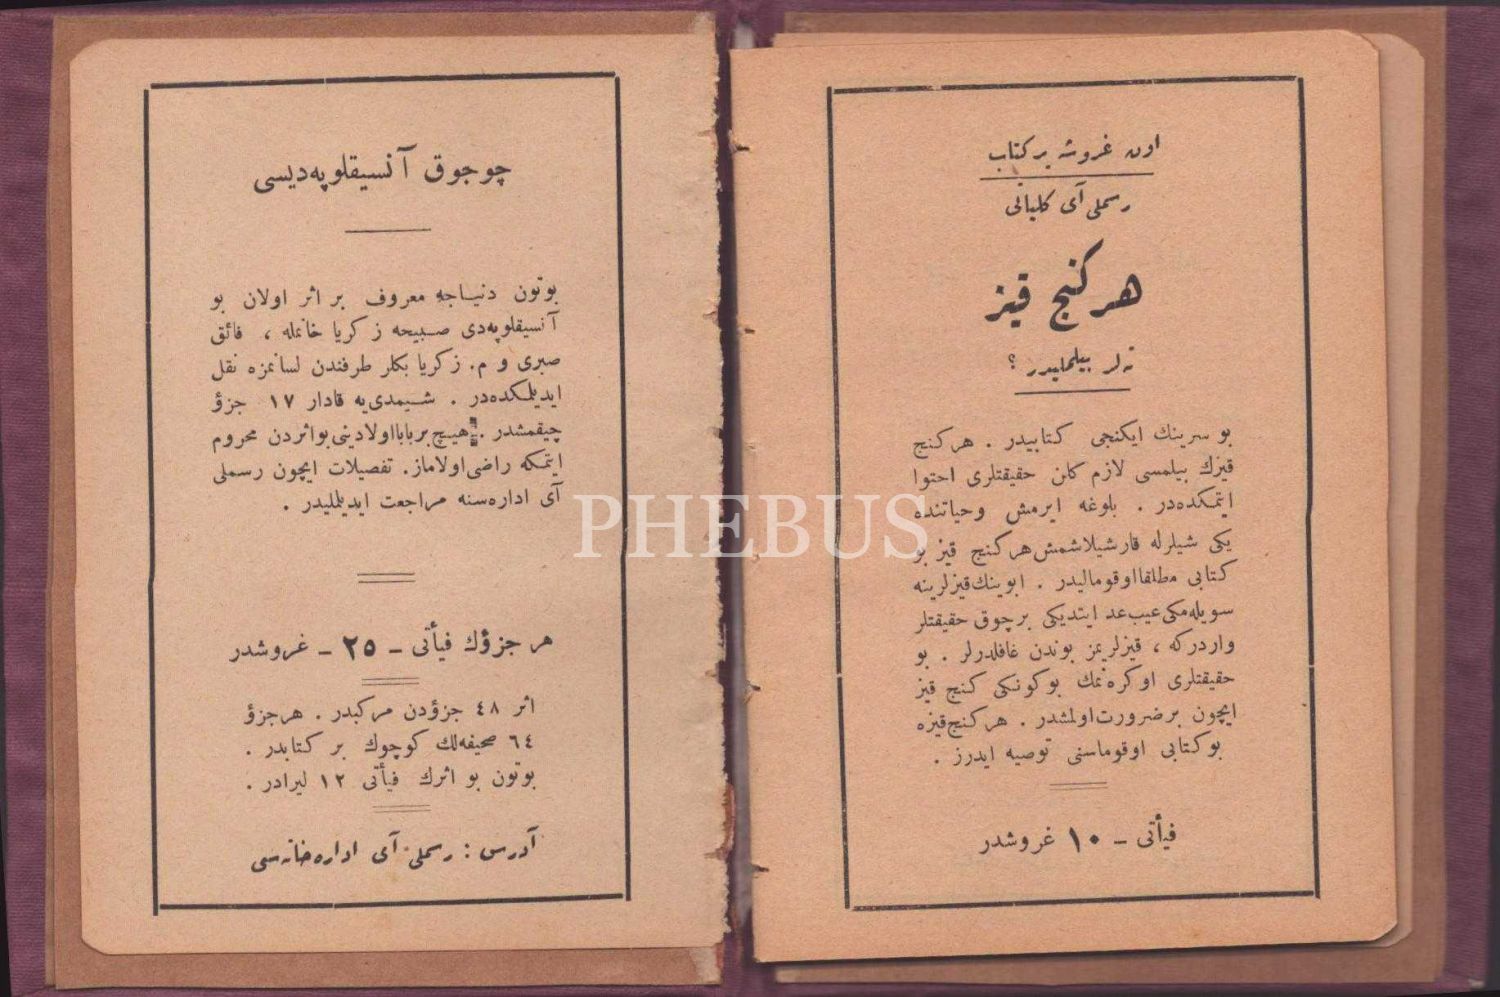 اون غروشه بر كتاب
رسملی آی كلیاتی
هر كنج قیز
نه لر بیلملیدر ؟
بو سرینك ایكنجی كتابیدر . هر كنج
قیزك بیلمسی لازم كلن حقیقتلری احتوا
ایتمكده در . بلوغه ایرمش وحیاتنده
یكی شیلرله قارشیلاشمش هر كنج قیز بو
كتابی مطلقا اوقومالیدر . ابوینك قیزلرینه
سویله مكی عیب عد ایتدیكی بر چوق حقیقتلر
واردركه ، قیزلریمز بوندن غافلدرلر . بو
حقیقتلری اوكره نمك بوكونكی كنج قیز
ایچون بر ضرورت اولمشدر . هر كنج قیزه
بو كتابی اوقوماسنی توصیه ایدرز .
فیأتی – ١٠ غروشدر
چوجوق آنسیقلوپه دیسی
بوتون دنیاجه معروف بر اثر اولان بو
آنسیقلوپه دی صبیحه زكریا خانمله ، فائق
صبری و م. زكریا بكلر طرفندن لسانمزه نقل
ایدیلمكده در . شیمدی یه قادار ١٧ جزؤ
چیقمشدر . هیچ بر بابا اولادینی بو اثردن محروم
ایتمكه راضی اولاماز. تفصیلات ایچون رسملی
آی اداره سنه مراجعت ایدیلملیدر .
هر جزؤك فیأتی – ٢٥ – غروشدر
اثر ٤٨ جزؤدن مركبدر . هر جزؤ
٦٤ صحیفه لك كوچوك بر كتابدر .
بوتون بو اثرك فیأتی ١٢ لیرادر .
آدرس : رسملی آی اداره خانه سی
PHEBUS